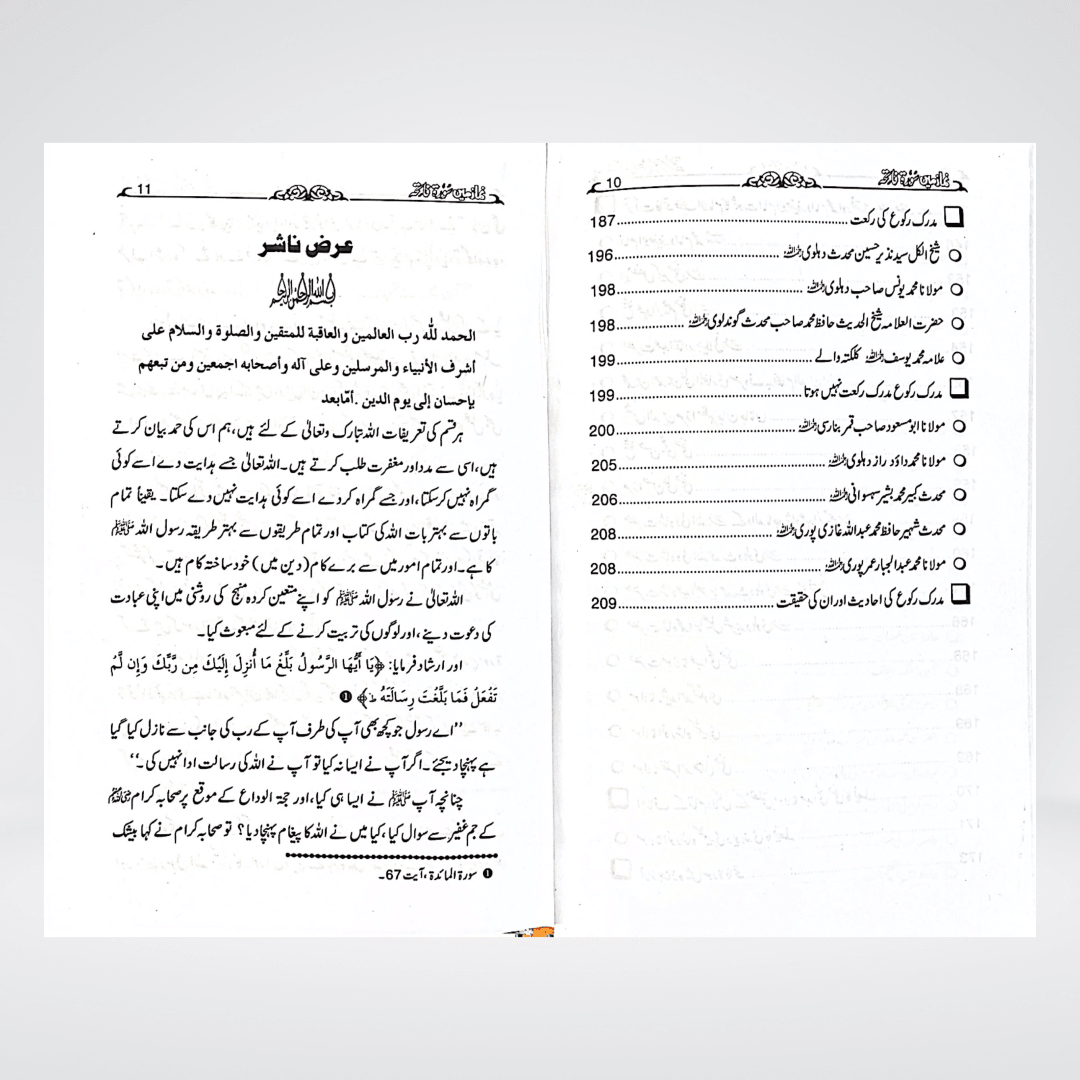 نماز میں سُورۃ فاتحہ 10
مدرک رکوع کی رکعت 187
شیخ الکل سید نذیر حسین محدث دہلوی رحمہ اللہ 196
مولانا محمد یونس صاحب دہلوی رحمہ اللہ 198
حضرت العلامہ شیخ الحدیث حافظ محمد صاحب محدث گوندلوی رحمہ اللہ 198
علامہ محمد یوسف رحمہ اللہ کلکتہ والے 199
مدرک رکوع مدرک رکعت نہیں ہوتا 199
مولانا ابو مسعود صاحب قمر بنارسی رحمہ اللہ 200
مولانا محمد داؤد راز دہلوی رحمہ اللہ 205
محدث کبیر محمد بشیر سہسوانی رحمہ اللہ 206
محدث شہیر حافظ محمد عبداللہ غازی پوری رحمہ اللہ 208
مولانا محمد عبدالجبار عمر پوری رحمہ اللہ 208
مدرک رکوع کی احادیث اور ان کی حقیقت 209
نماز میں سُورۃ فاتحہ 11
عرض ناشر
بسم الله الرحمن الرحيم
الحمد للّٰه رب العالمين والعاقبة للمتقين والصلوة والسلام على
أشرف الأنبياء والمرسلين وعلى آله وأصحابه اجمعين ومن تبعهم
بإحسان إلى يوم الدين . أمّابعد
ہر قسم کی تعریفات اللہ تبارک وتعالیٰ کے لئے ہیں، ہم اس کی حمد بیان کرتے
ہیں، اسی سے مدد اور مغفرت طلب کرتے ہیں۔ اللہ تعالیٰ جسے ہدایت دے اسے کوئی
گمراہ نہیں کر سکتا، اور جسے گمراہ کر دے اسے کوئی ہدایت نہیں دے سکتا۔ یقیناً تمام
باتوں سے بہتر بات اللہ کی کتاب اور تمام طریقوں سے بہتر طریقہ رسول اللہ ﷺ
کا ہے۔ اور تمام امور میں سے برے کام (دین میں) خود ساختہ کام ہیں۔
اللہ تعالیٰ نے رسول اللہ ﷺ کو اپنے متعین کردہ منہج کی روشنی میں اپنی عبادت
کی دعوت دینے، اور لوگوں کی تربیت کرنے کے لئے مبعوث کیا۔
اور ارشاد فرمایا: ﴿يَا أَيُّهَا الرَّسُولُ بَلِّغْ مَا أُنزِلَ إِلَيْكَ مِن رَّبِّكَ وَإِن لَّمْ
تَفْعَلْ فَمَا بَلَّغْتَ رِسَالَتَهُ ط﴾ ❶
’’اے رسول جو کچھ بھی آپ کی طرف آپ کے رب کی جانب سے نازل کیا گیا
ہے پہنچا دیجئے۔ اگر آپ نے ایسا نہ کیا تو آپ نے اللہ کی رسالت ادا نہیں کی۔‘‘
چنانچہ آپ ﷺ نے ایسا ہی کیا، اور حجۃ الوداع کے موقع پر صحابہ کرام رضی اللہ عنہم
کے جم غفیر سے سوال کیا، کیا میں نے اللہ کا پیغام پہنچا دیا؟ تو صحابہ کرام نے کہا بیشک
❶ سورۃ المائدۃ، آیت 67۔